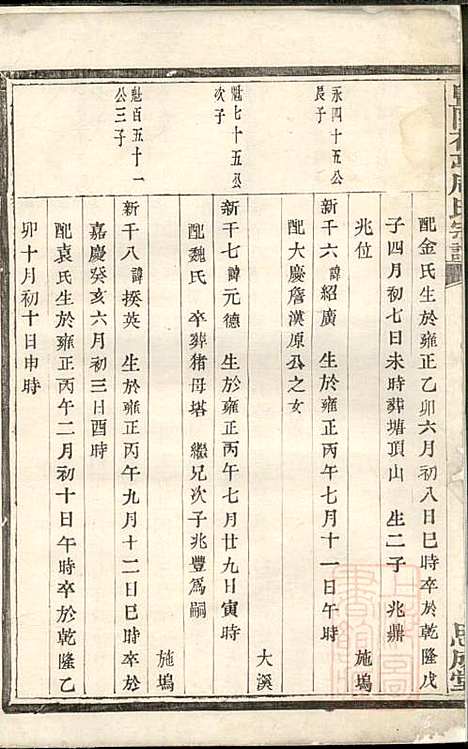 配金氏生於雍正乙卯六月初八日巳時卒於乾隆戊
子四月初七日未時葬塘頂山 生二子 兆鼎
兆位 施塢
永四十五公
長子
新千六諱紹廣 生於雍正丙午七月十一日午時
配大慶詹漢原公之女 大溪
魁七十五公
次子
新千七諱元德 生於雍正丙午七月廿九日寅時
配魏氏 卒葬猪母塔 繼兄次子兆豐爲嗣
施塢
魁百五十一
公三子
新千八諱揆英 生於雍正丙午九月十二日巳時卒於
嘉慶癸亥六月初三日酉時
配袁氏生於雍正丙午二月初十日午時卒於乾隆乙
卯十月初十日申時
思成堂